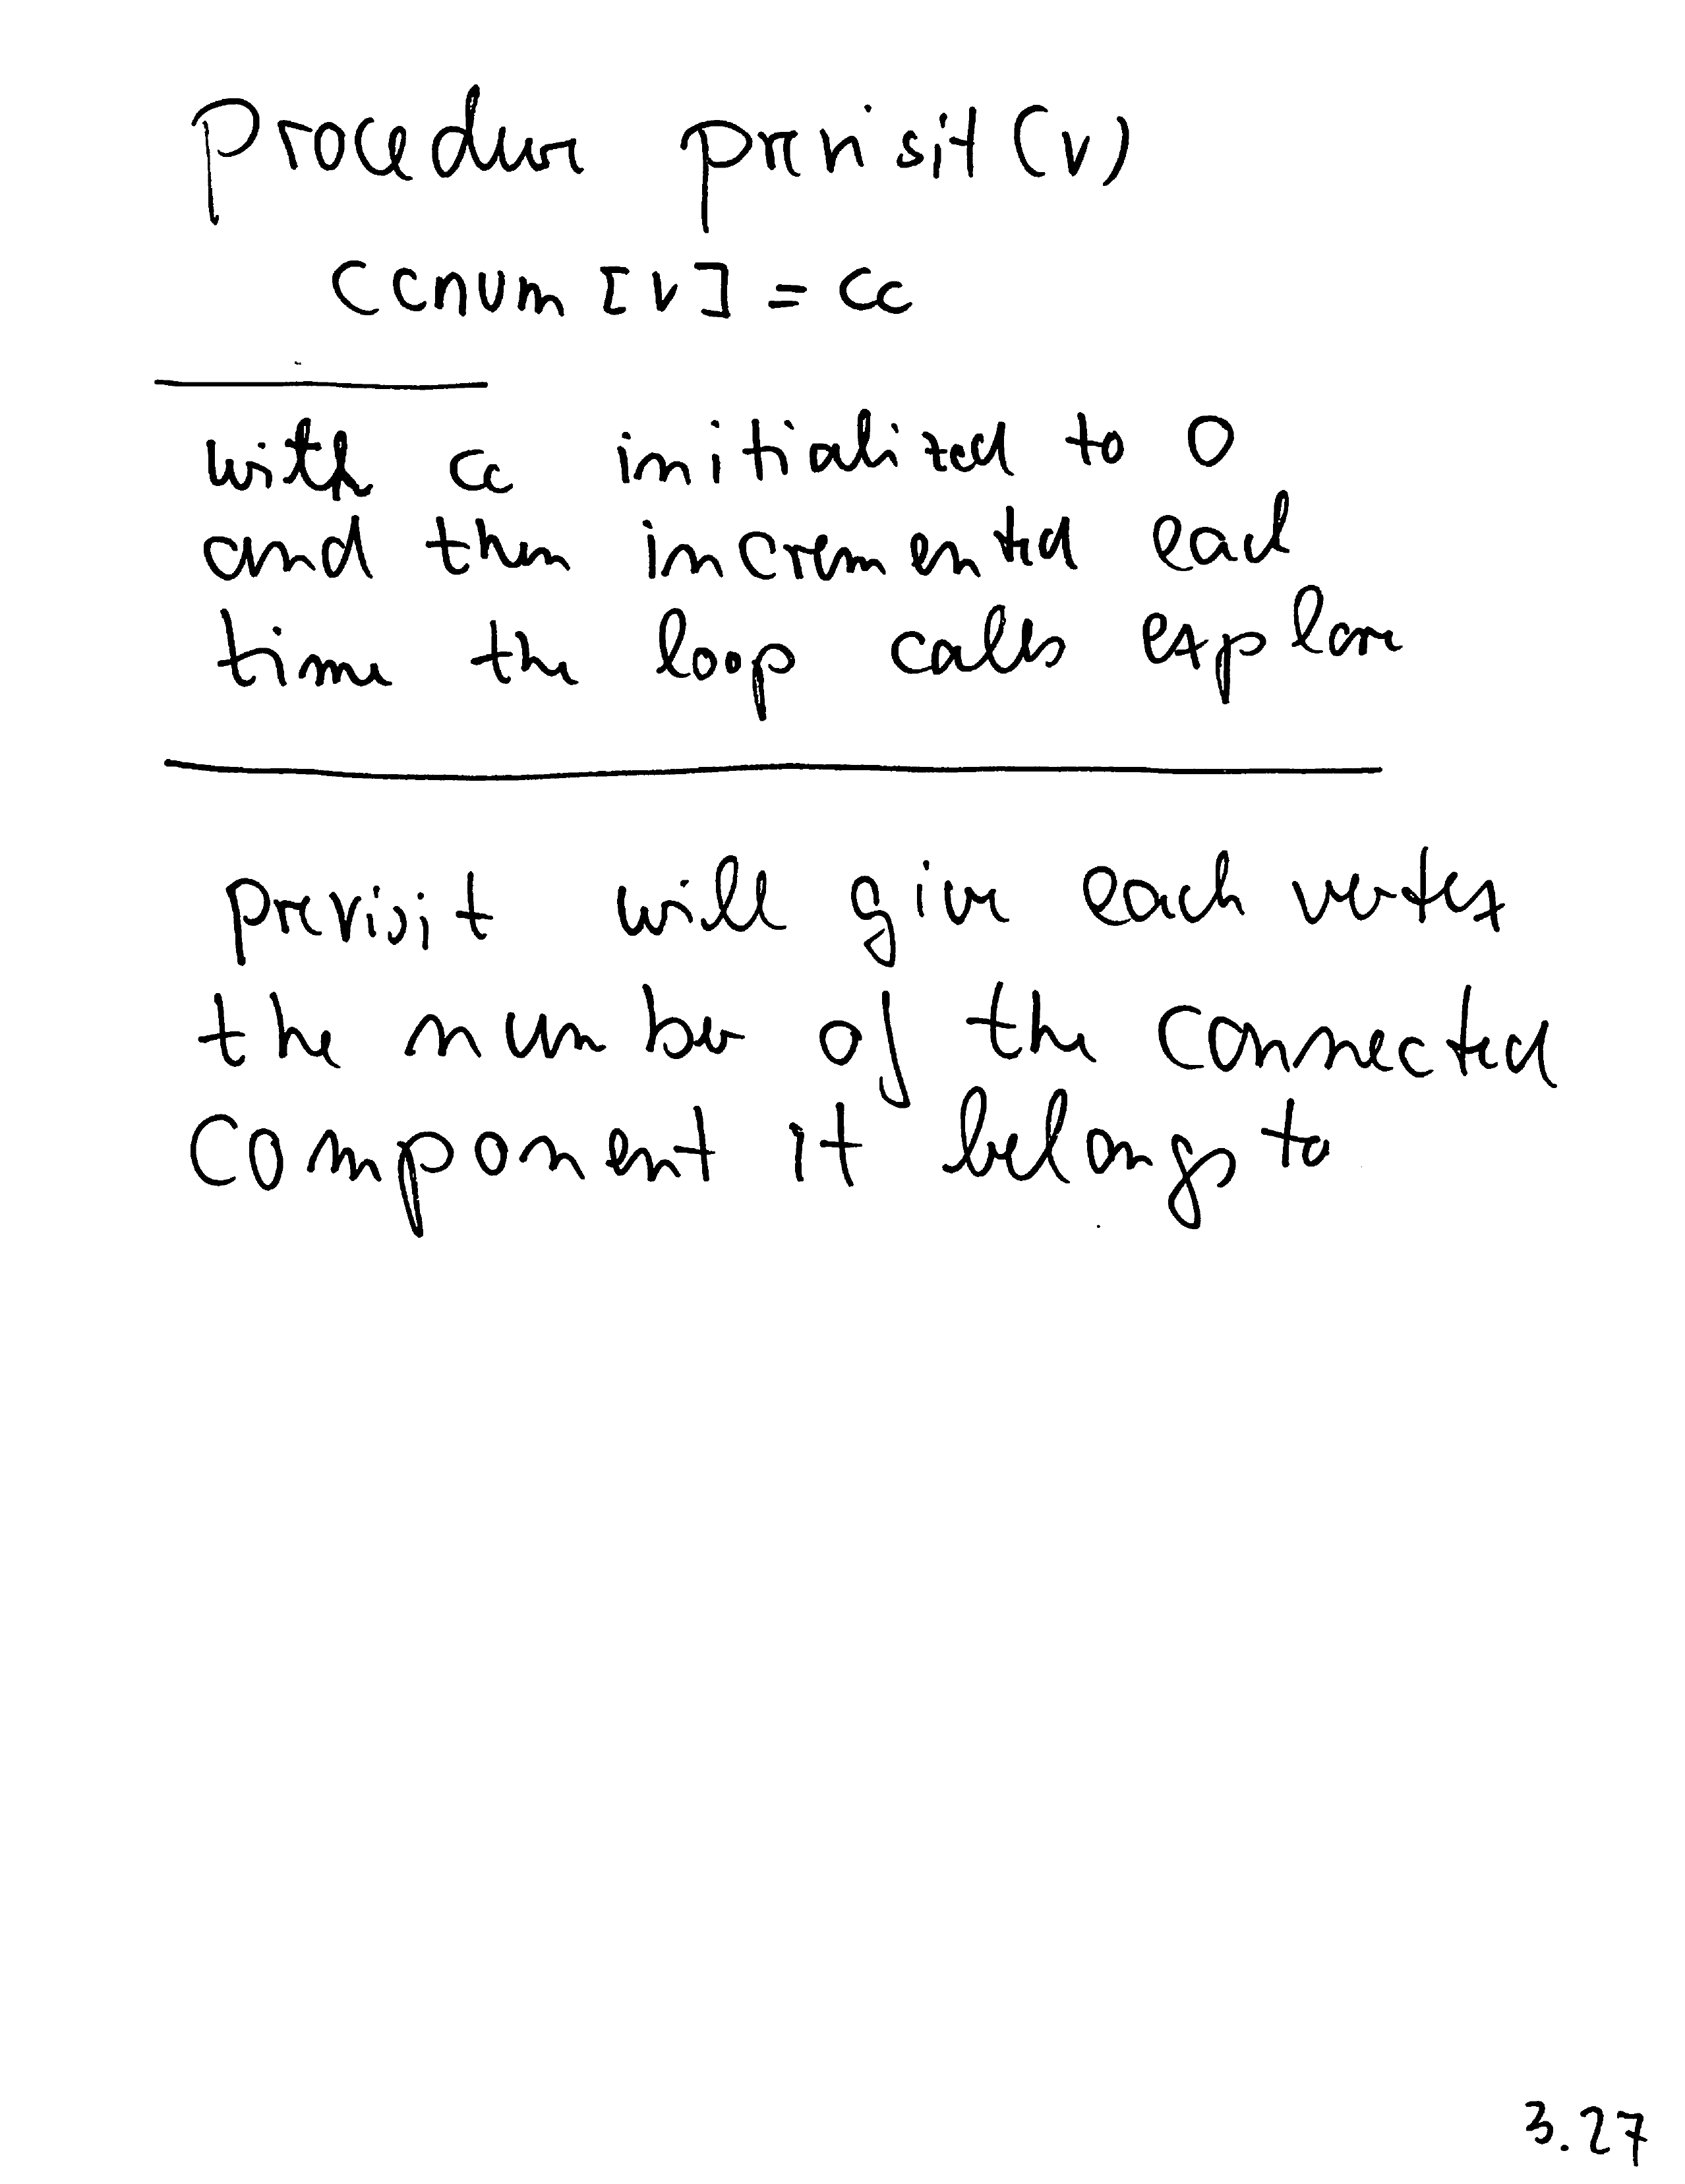 procedure previsit(v)
ccnum[v] = cc
with cc initialized to 0
and then incremented each
time the loop calls explore
previsit will give each vertex
the number of the connected
component it belongs to
3.27